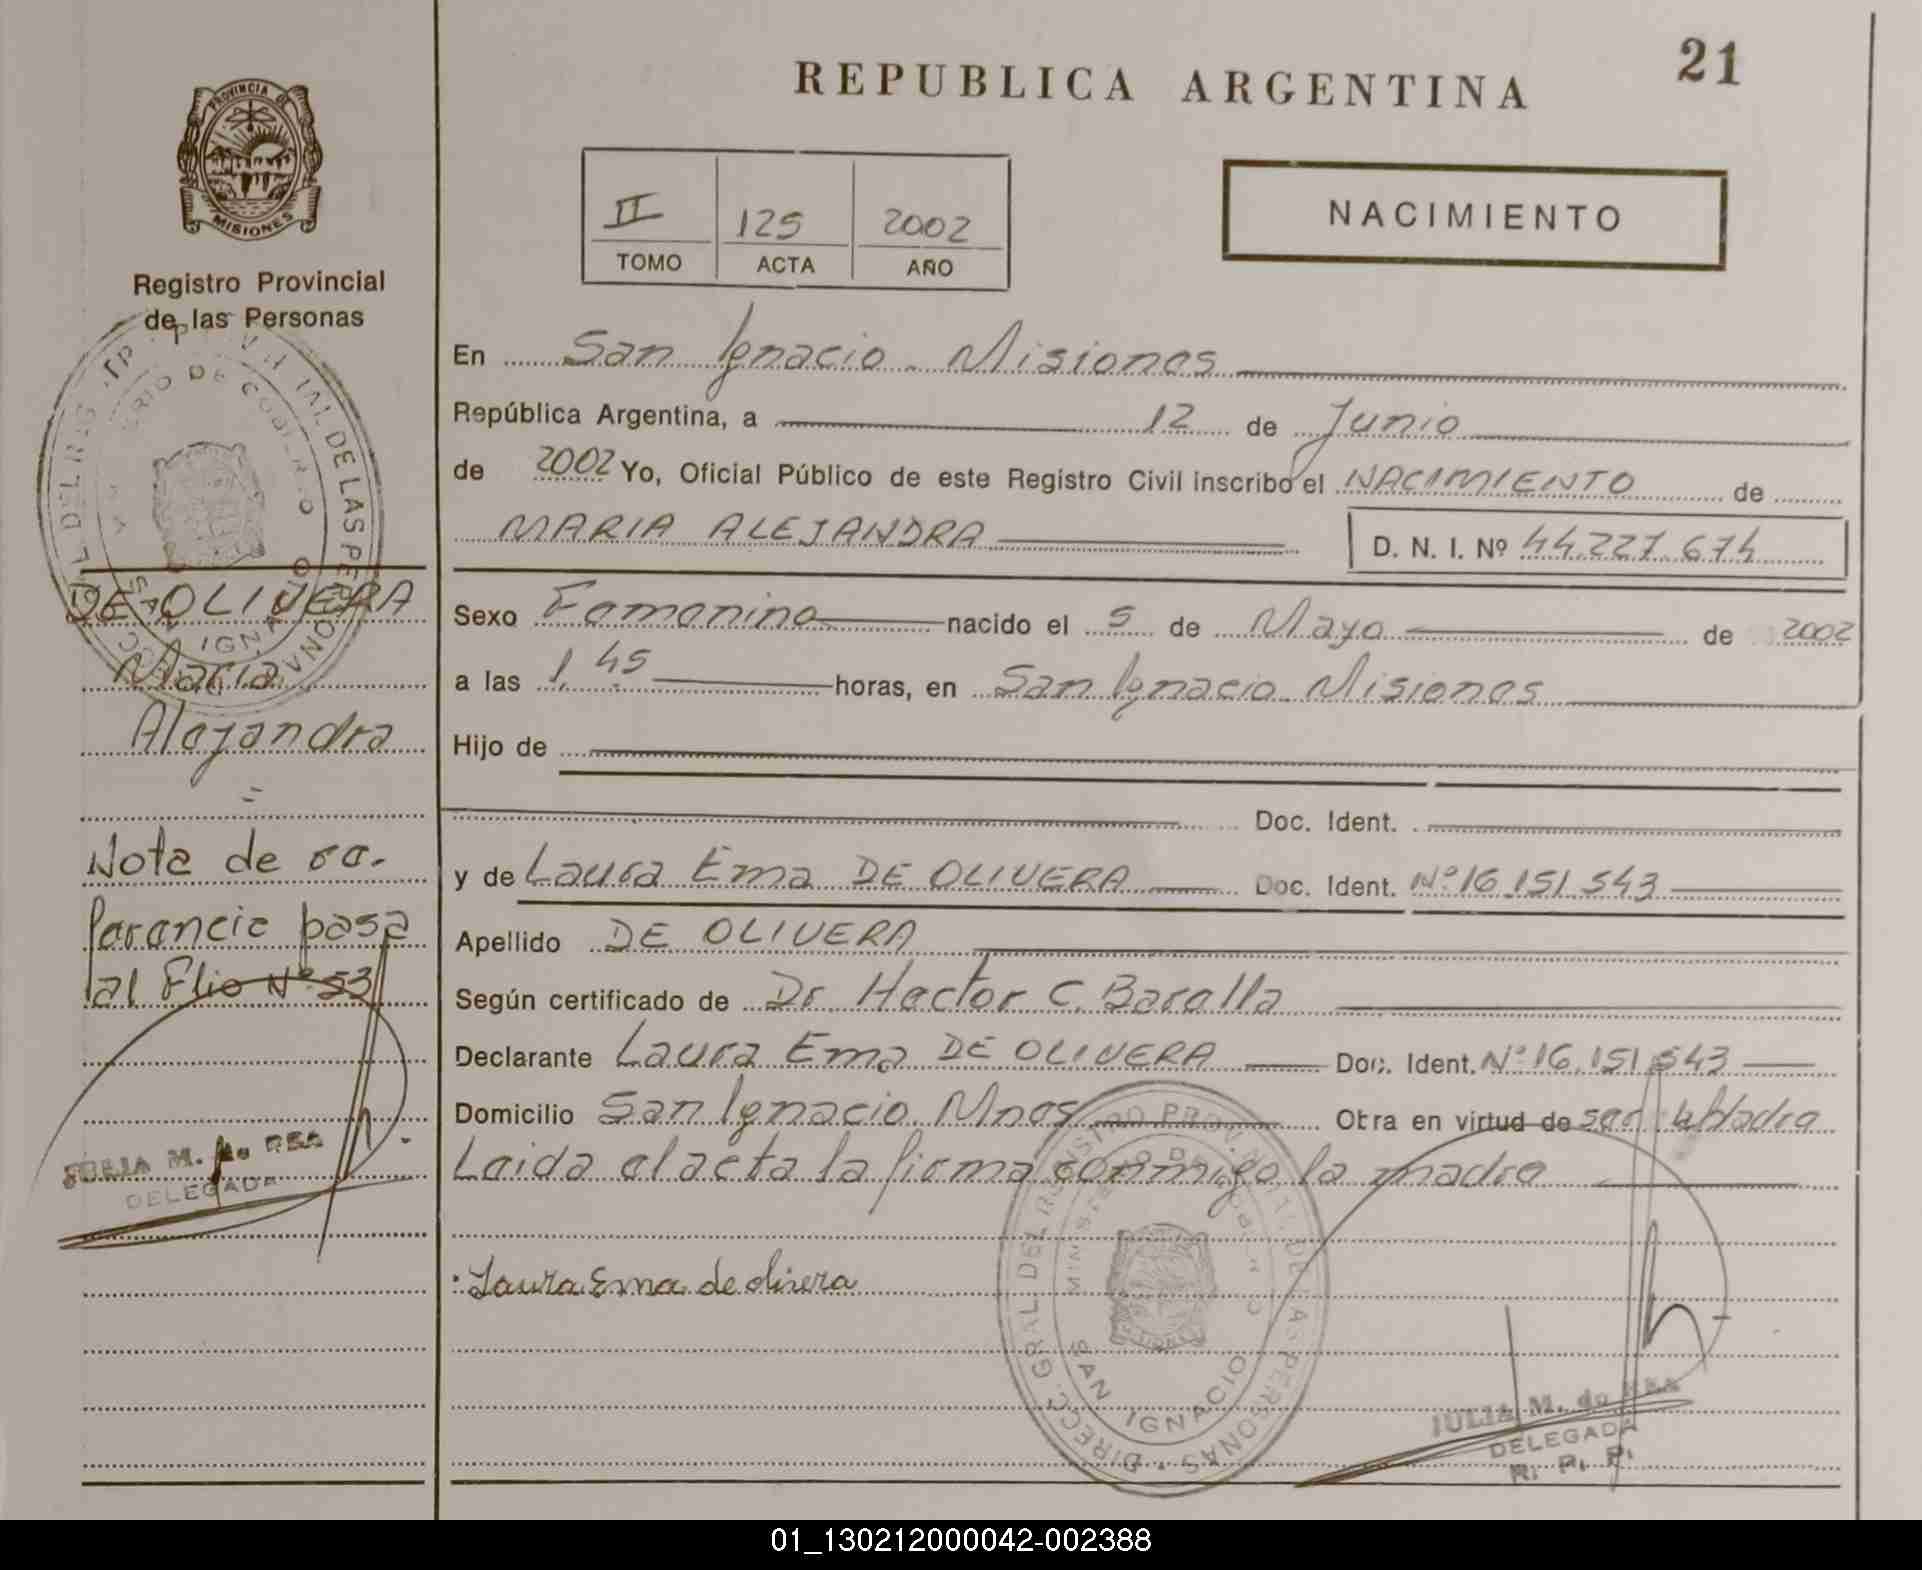 21
REPUBLICA ARGENTINA
PROVINCIA DE
MISIONES
Registro Provincial
de las Personas
II 125 2002
TOMO ACTA AÑO
NACIMIENTO
En San Ignacio. Misiones
República Argentina, a 12 de Junio
de 2002 Yo, Oficial Público de este Registro Civil inscribo el NACIMIENTO de
MARIA ALEJANDRA D. N. I. Nº 44.227.674
Sexo Femenino nacido el 5 de Mayo de 2002
a las 1,45 horas, en San Ignacio. Misiones
Hijo de
Doc. Ident.
y de Laura Ema DE OLIVERA Doc. Ident. Nº 16.151.543
Apellido DE OLIVERA
Según certificado de Dr. Hector C. Baralla
Declarante Laura Ema DE OLIVERA Doc. Ident. Nº 16.151.543
Domicilio San Ignacio. Mnes Otra en virtud de ser la Madre
Leida el acta la firma conmigo la madre
Laura Ema de olivera
DE OLIVERA
Maria
Alejandra
Nota de re.
ferencia pasa
al Flio Nº 53
JULIA M. de REA
DELEGADA
DIRECC. GRAL. DEL REGISTRO PROVINCIAL DE LAS PERSONAS
MINISTERIO DE GOBIERNO
SAN IGNACIO
JULIA M. de REA
DELEGADA
R. P. P.
01_130212000042-002388